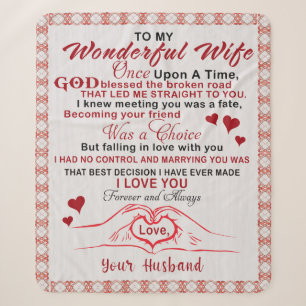 TO MY
Wonderful Wife
Once Upon A Time,
GOD blessed the broken road
THAT LED ME STRAIGHT TO YOU.
I knew meeting you was a fate,
Becoming your friend
Was a Choice
But falling in love with you
I HAD NO CONTROL AND MARRYING YOU WAS
THAT BEST DECISION I HAVE EVER MADE
I LOVE YOU
Forever and Always
Love,
Your Husband